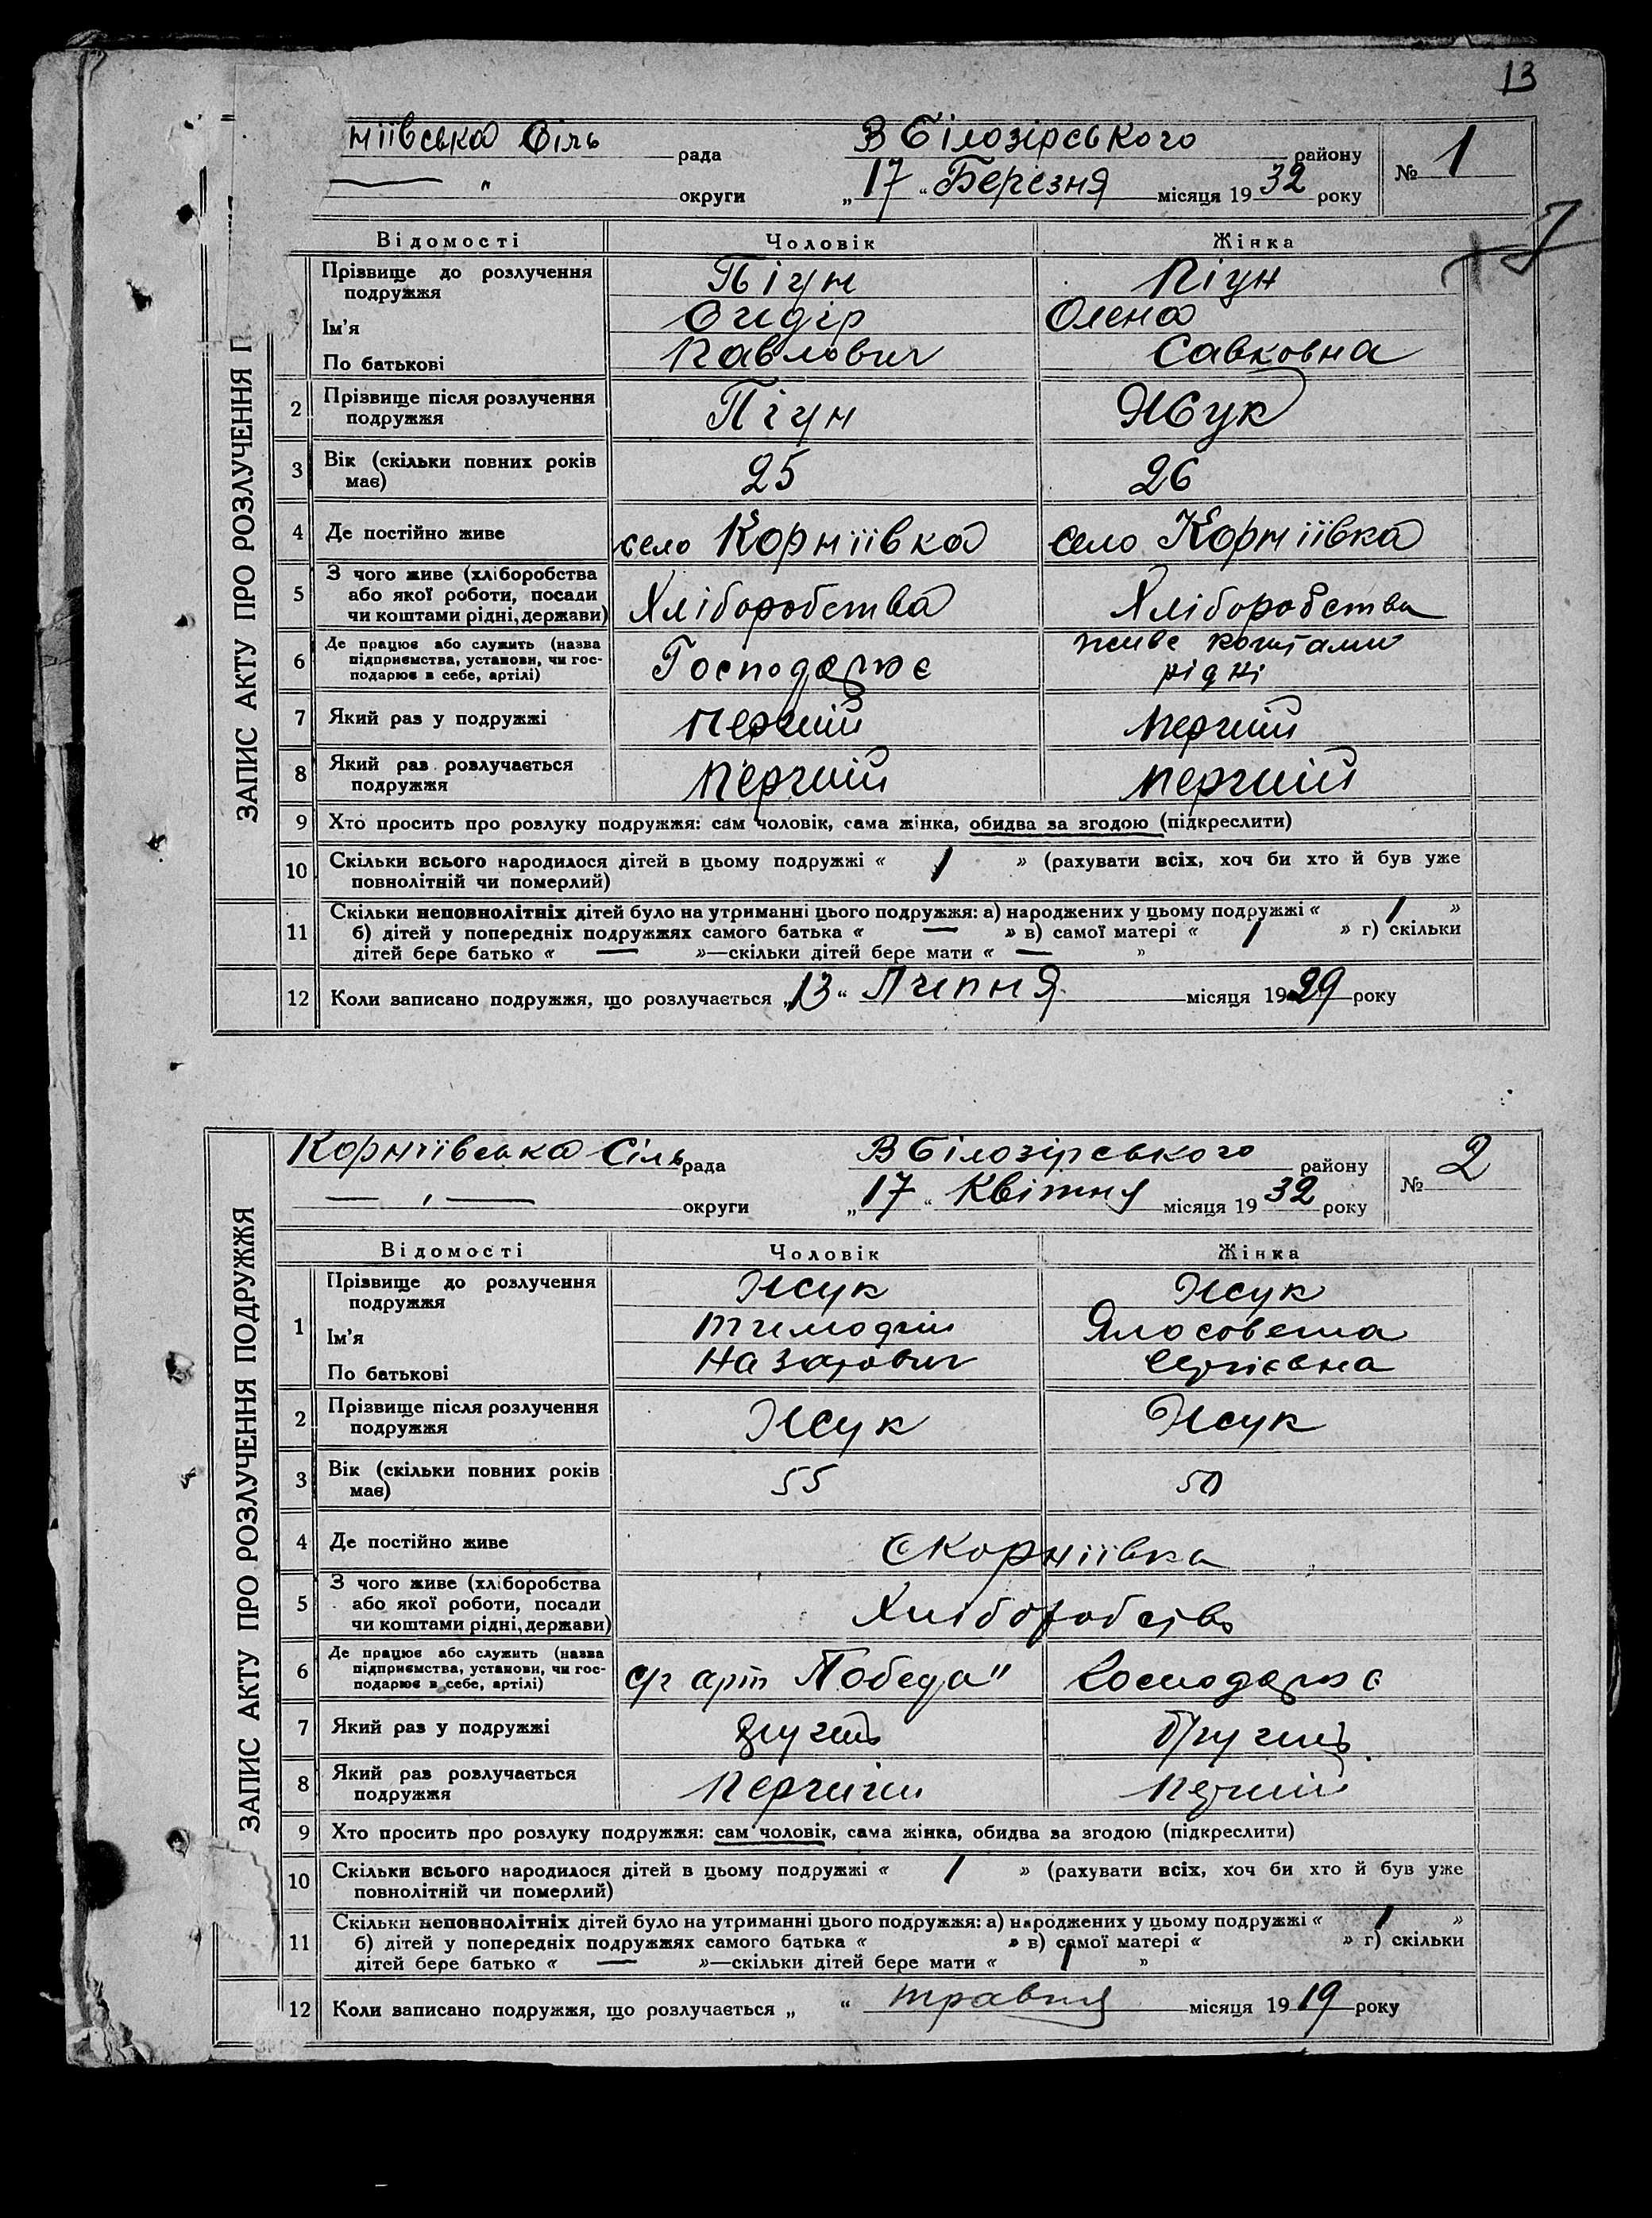 13
міївська Сіль рада В Білозірського району № 1
— " округи „17“ Березня місяця 1932 року
Відомості Чоловік Жінка
Прізвище до розлучення Пігун Пігун
подружжя
Ім'я Сидір Олена
По батькові Павлович Савковна
2 Прізвище після розлучення Пігун Жук
подружжя
3 Вік (скільки повних років 25 26
має)
4 Де постійно живе село Корміївка село Корміївка
5 З чого живе (хліборобства
або якої роботи, посади Хліборобства Хліборобства
чи коштами рідні, держави)
6 Де працює або служить (назва живе коштами
підприємства, установи, чи гос- Господарює рідні
подарює в себе, артілі)
7 Який раз у подружжі перший перший
8 Який раз розлучається перший перший
подружжя
9 Хто просить про розлуку подружжя: сам чоловік, сама жінка, обидва за згодою (підкреслити)
10 Скільки всього народилося дітей в цьому подружжі « 1 » (рахувати всіх, хоч би хто й був уже
повнолітній чи померлий)
11 Скільки неповнолітніх дітей було на утриманні цього подружжя: а) народжених у цьому подружжі « 1 »
б) дітей у попередніх подружжях самого батька « — » в) самої матері « 1 » г) скільки
дітей бере батько « — »—скільки дітей бере мати « — »
12 Коли записано подружжя, що розлучається „13“ Липня місяця 1929 року
ЗАПИС АКТУ ПРО РОЗЛУЧЕННЯ П
Корміївська Сіль рада В Білозірського району № 2
— , — округи „17“ Квітня місяця 1932 року
Відомості Чоловік Жінка
1 Прізвище до розлучення Жук Жук
подружжя
Ім'я Тимофій Ялосовета
По батькові Назарович Сергієвна
2 Прізвище після розлучення Жук Жук
подружжя
3 Вік (скільки повних років 55 50
має)
4 Де постійно живе с Корміївка
5 З чого живе (хліборобства
або якої роботи, посади Хліборобство
чи коштами рідні, держави)
6 Де працює або служить (назва
підприємства, установи, чи гос- с/г арт Победа" Господарює
подарює в себе, артілі)
7 Який раз у подружжі Другий Другий
8 Який раз розлучається Перший Перший
подружжя
9 Хто просить про розлуку подружжя: сам чоловік, сама жінка, обидва за згодою (підкреслити)
10 Скільки всього народилося дітей в цьому подружжі « 1 » (рахувати всіх, хоч би хто й був уже
повнолітній чи померлий)
11 Скільки неповнолітніх дітей було на утриманні цього подружжя: а) народжених у цьому подружжі « 1 »
б) дітей у попередніх подружжях самого батька « » в) самої матері « » г) скільки
дітей бере батько « — »—скільки дітей бере мати « 1 »
12 Коли записано подружжя, що розлучається „ “ травня місяця 1919 року
ЗАПИС АКТУ ПРО РОЗЛУЧЕННЯ ПОДРУЖЖЯ